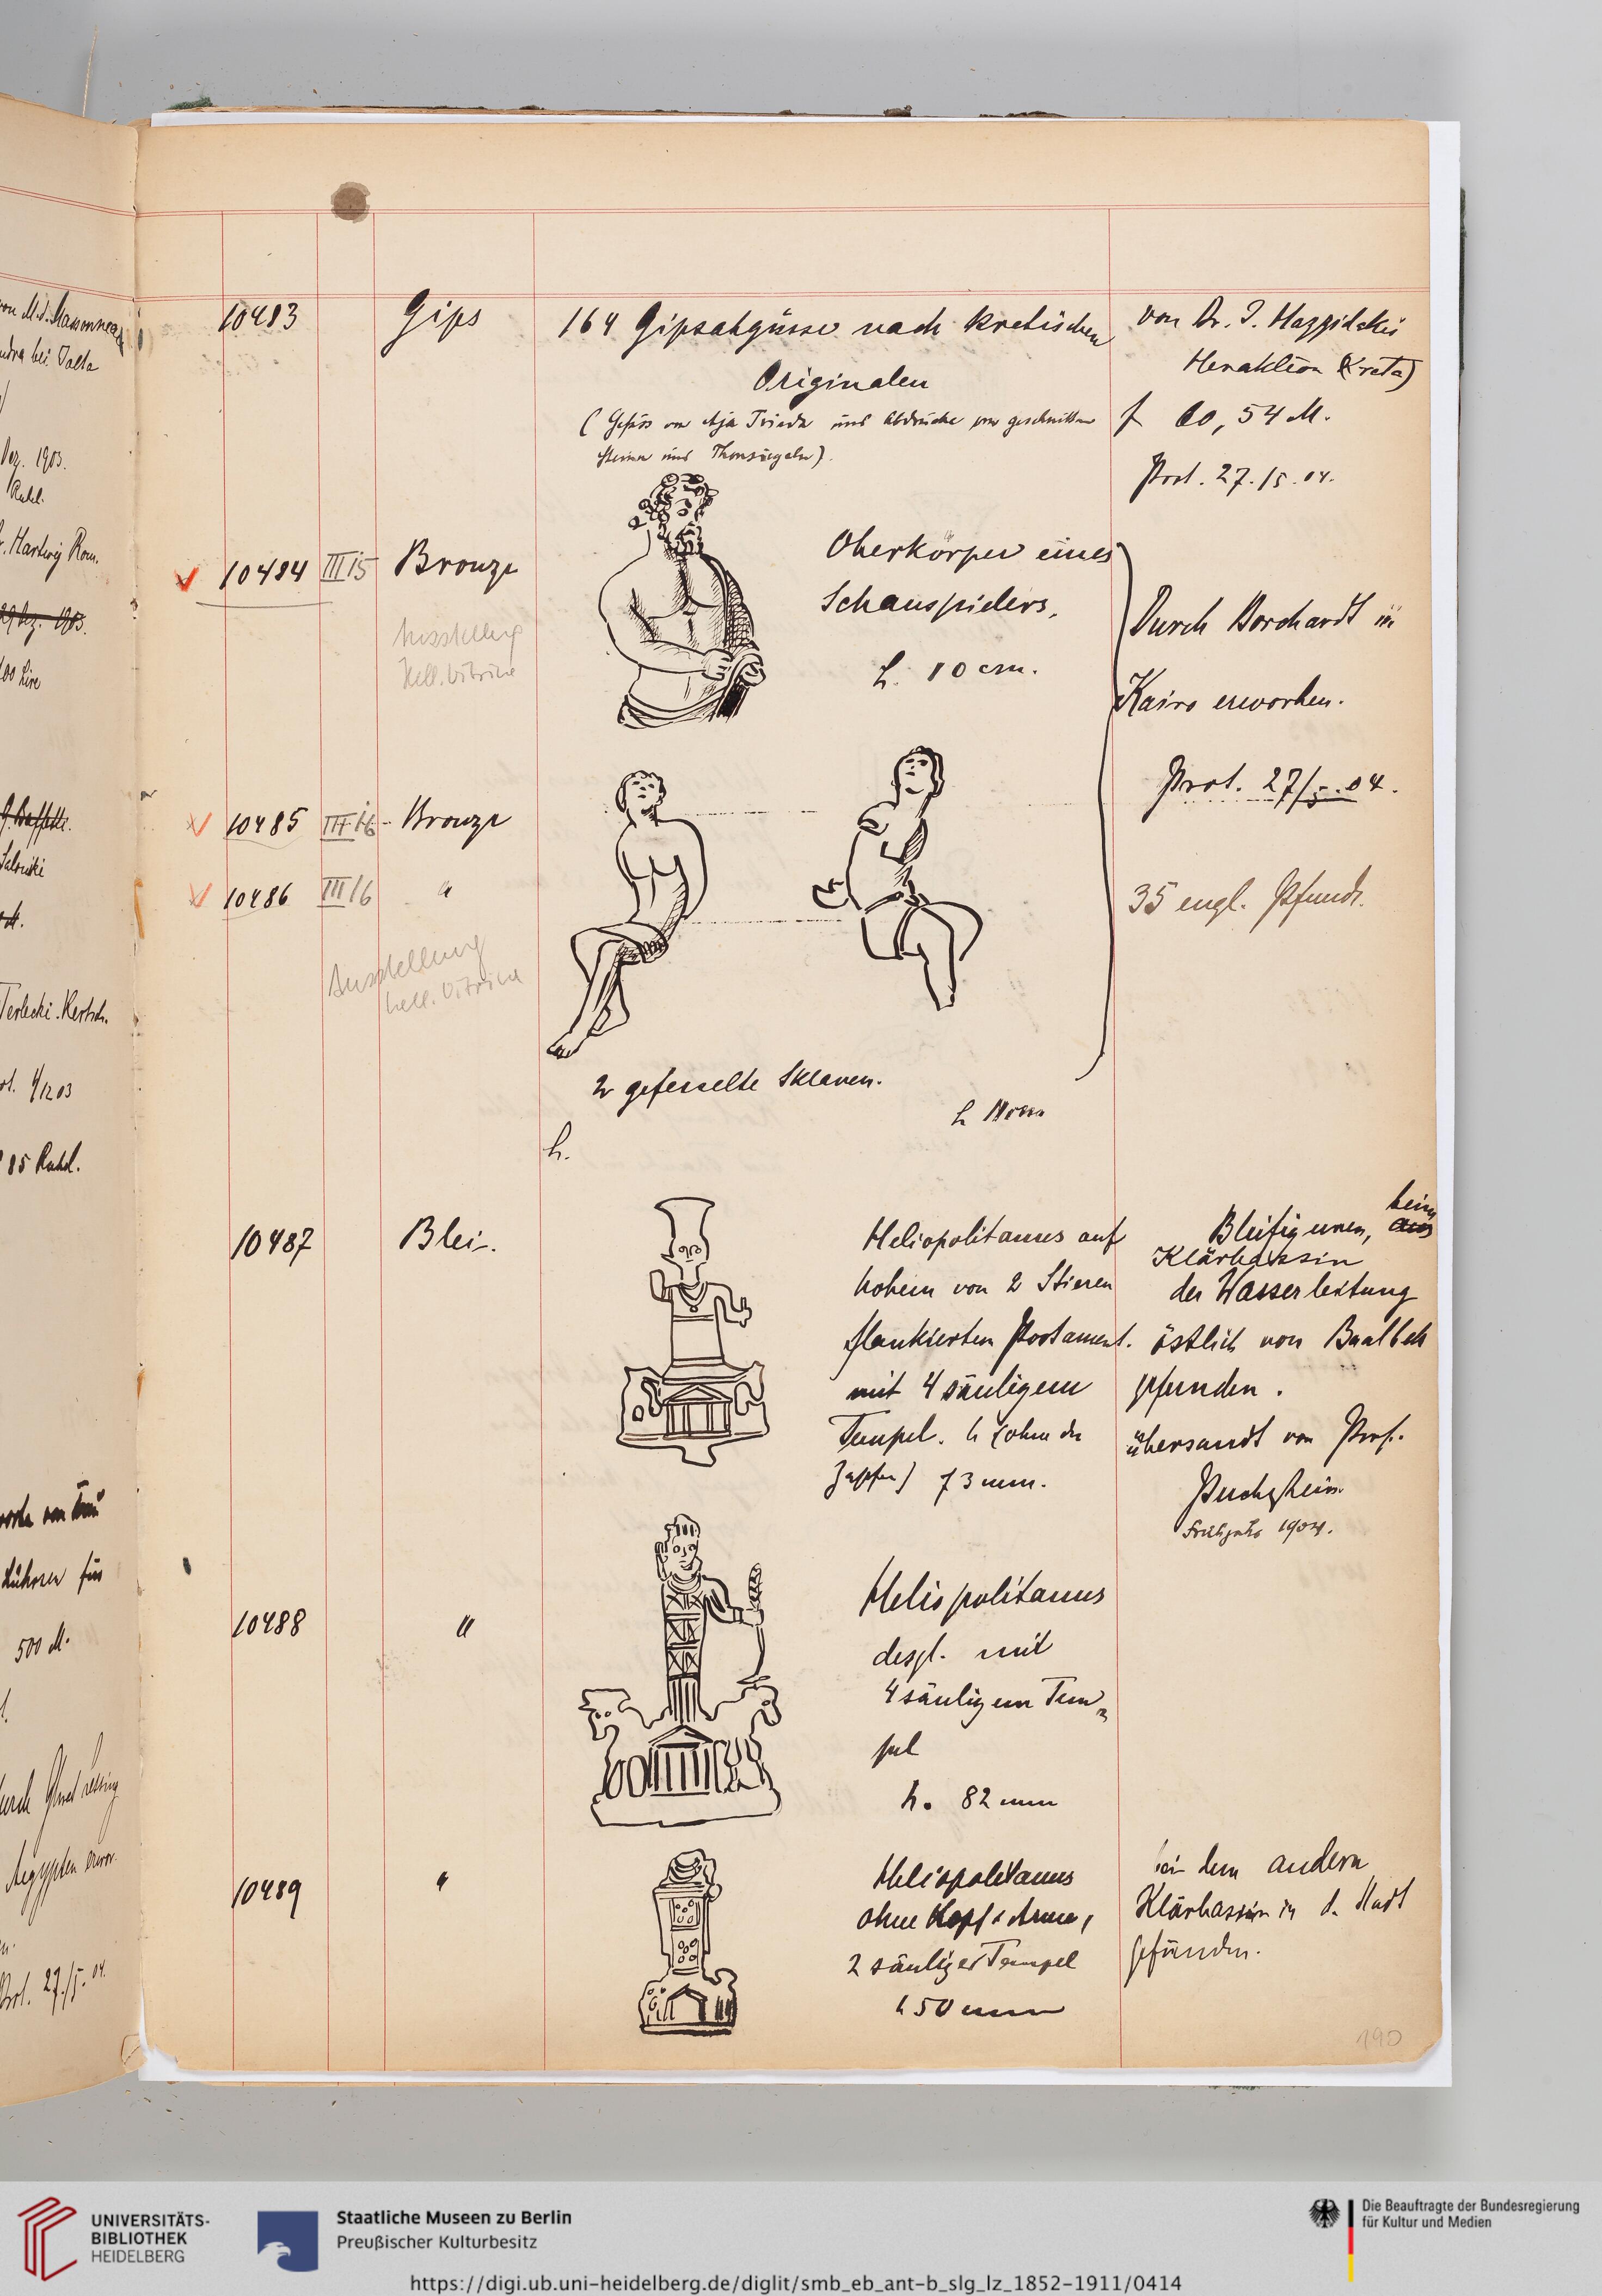 10483 Gips 164 Gipsabgüsse nach kretischen
Originalen
( Gefäss von Aja Triada und Abdrücke von geschnittenen
Steinen und Thonsiegeln).
von Dr. J. Hazzidakis
Heraklion (Kreta)
f 60,54 M.
Prot. 27./5.04.
10484 III i5 Bronze
Ausstellung
Hell. Vitrine
Oberkörper eines
Schauspielers,
h. 10 cm.
Durch Borchardt in
Kairo erworben.
Prot. 27/5.04.
35 engl. Pfund.
10485 III i6 Bronze
10486 III/6 "
Ausstellung
hell. Vitrine
2 gefesselte Sklaven.
h.
10487 Blei.
Heliopolitanus auf
hohem von 2 Stieren
flankierten Postament.
mit 4 säuligem
Tempel. h (ohne den
Zapfen) 73 mm.
Bleifiguren, beim
aus
Klärbassin
der Wasserleitung
östlich von Baalbek
gefunden.
übersandt von Prof.
Puchstein.
Frühjahr 1904.
10488 "
Heliopolitanus
desgl. mit
4 säuligem Tem-
pel
h. 82 mm
10489 "
Heliopolitanus
ohne Kopf u Arme,
2 säuliger Tempel
h 50 mm
bei dem andern
Klärbassin in d. Stadt
gefunden.
190
von M.d. Massonneau
bei Jalta
Dez. 1903.
Rubl.
Hartwig Rom.
29 Dez. 1903.
100 Lire
Saloniki
Terlecki. Kertsch.
4/12 03
85 Rubel.
500 M.
Aegypten
Prot. 27./5.04.
UNIVERSITÄTS-
BIBLIOTHEK
HEIDELBERG
Staatliche Museen zu Berlin
Preußischer Kulturbesitz
Die Beauftragte der Bundesregierung
für Kultur und Medien
https://digi.ub.uni-heidelberg.de/diglit/smb_eb_ant-b_slg_lz_1852-1911/0414